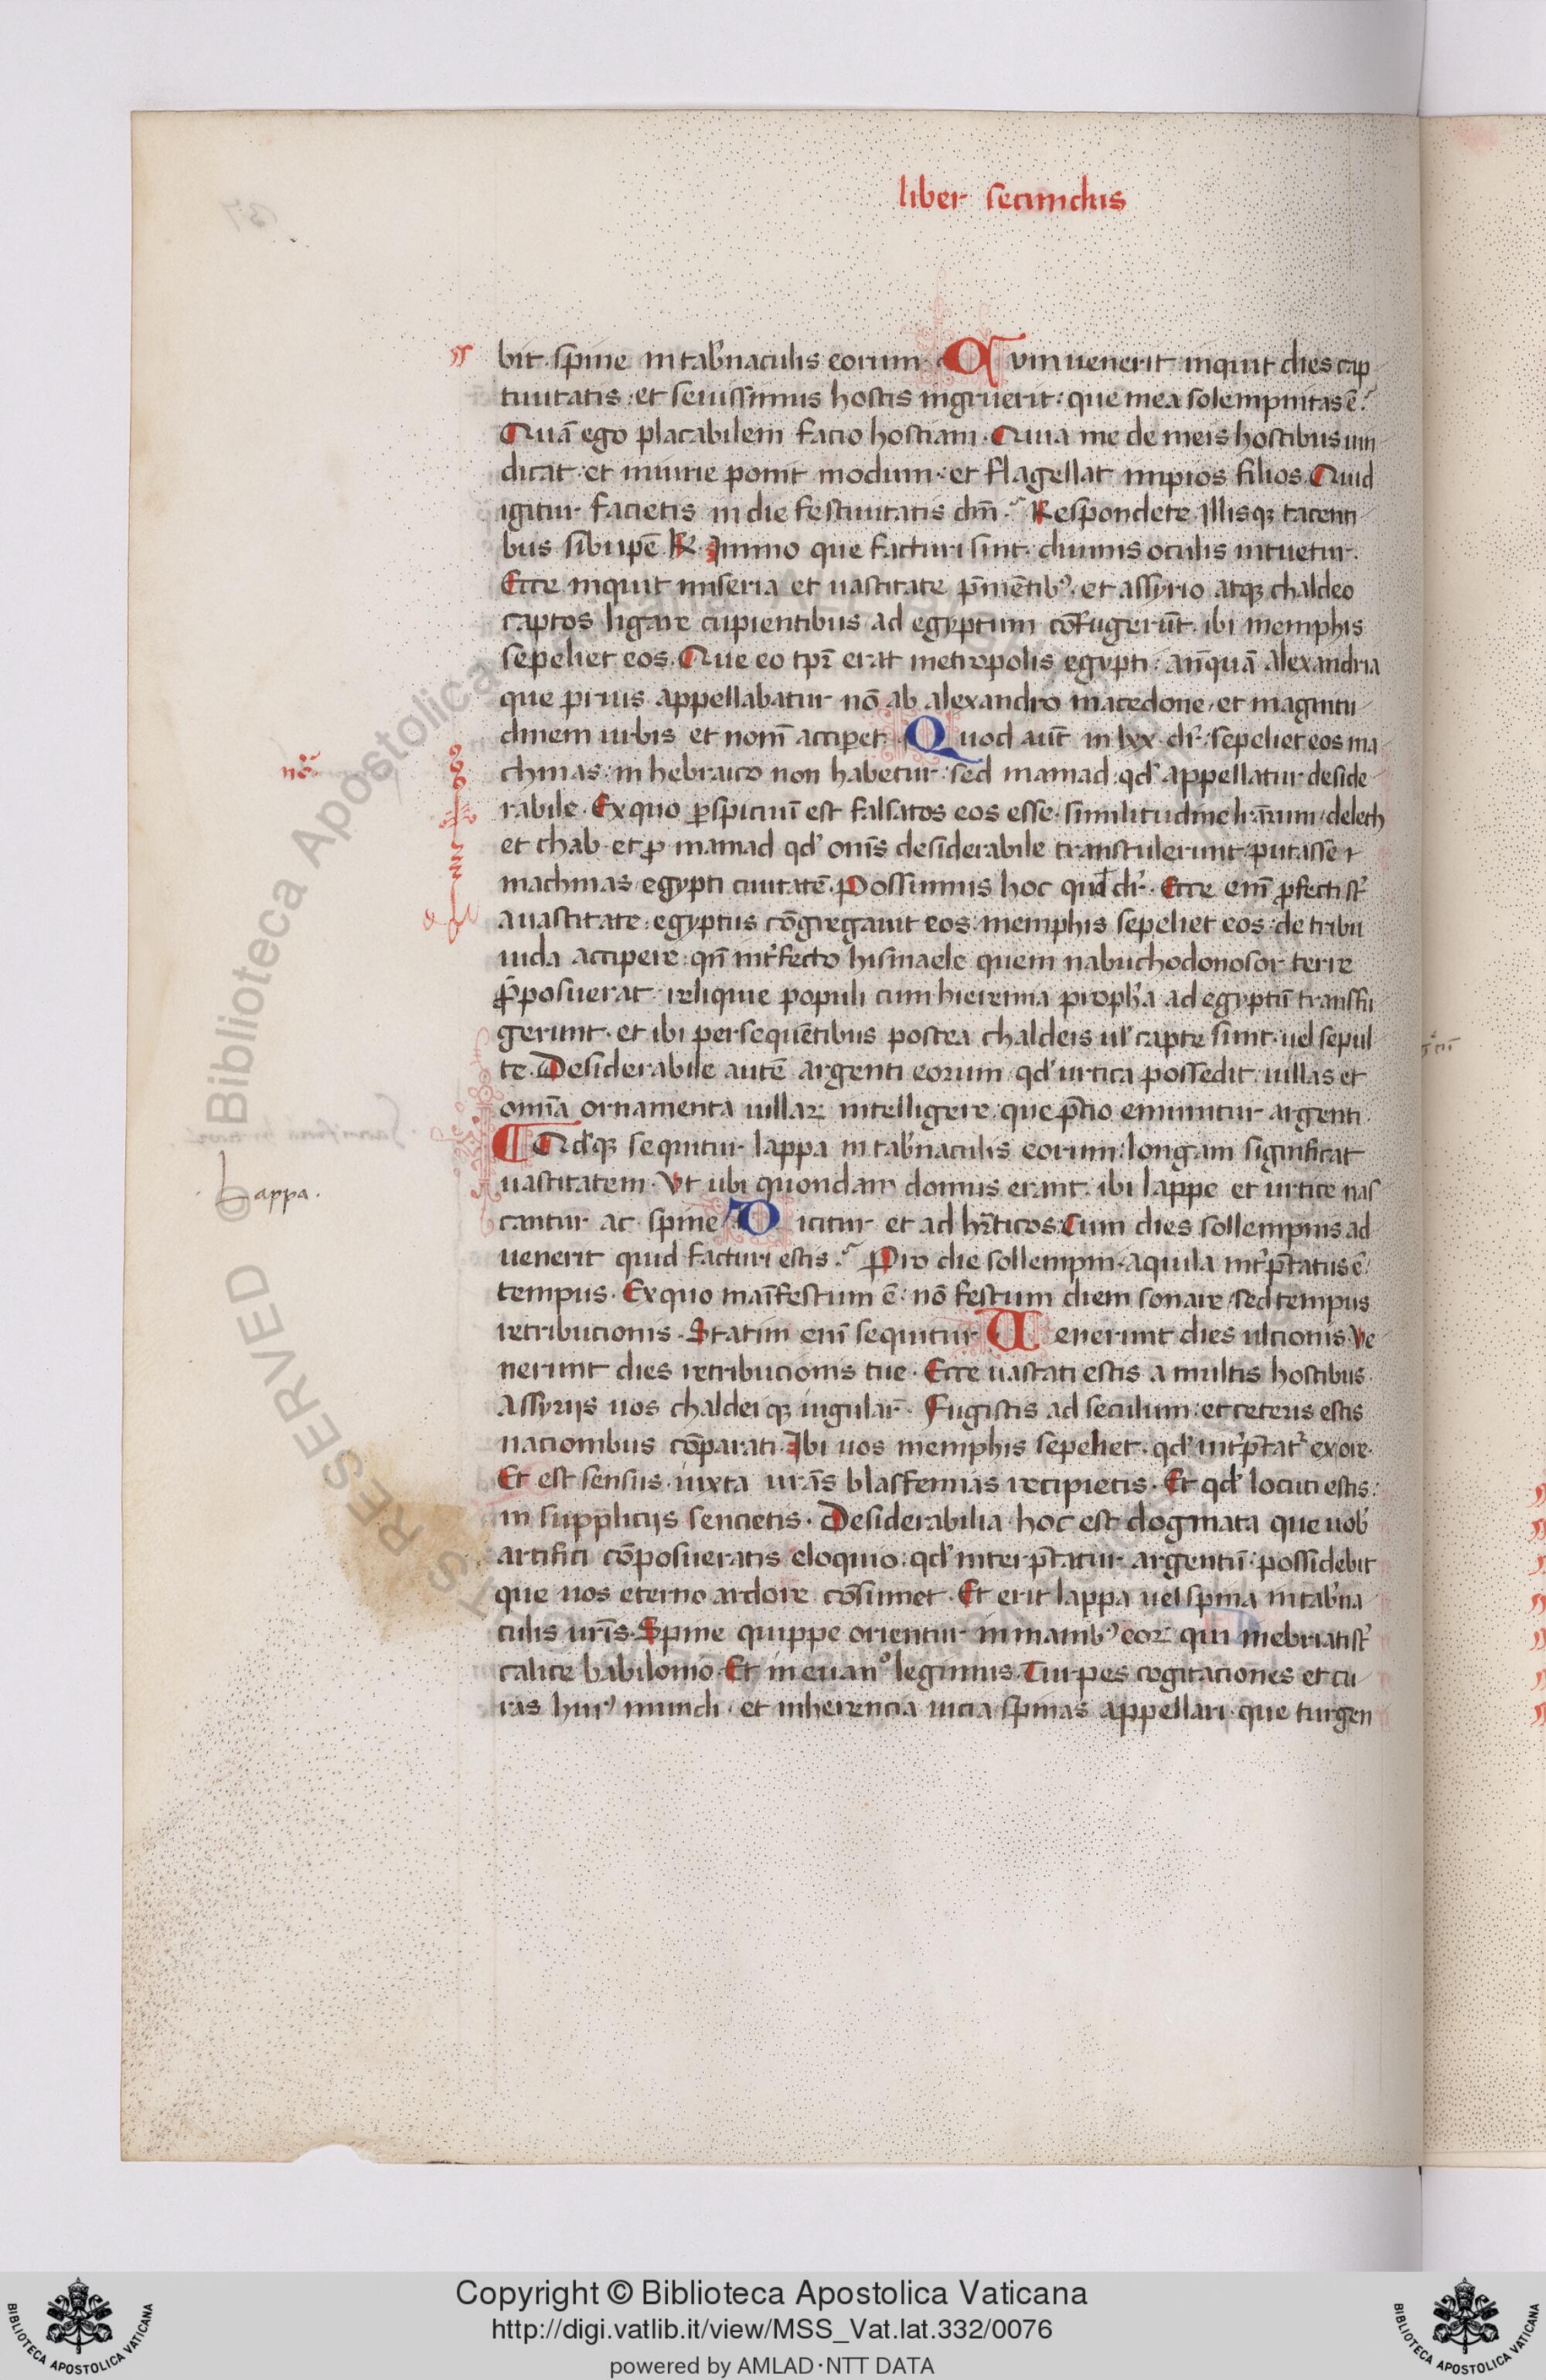 liber secundus
bit spine in tab̾naculis eorum. Qvm uenerit inquit dies cap
tiuitatis et seuissimus hostis ingruerit: que mea solempnitas ē?
Quā ego placabilem facio hostiam. Quia me de meis hostibus uin
dicat et iniurie ponit modum et flagellat impios filios. Quid
igitur facietis in die festiuitatis dn̄i? Respondete. Illisqꝫ tacenti
bus sibi ipē R. Immo que facturi sint diuinis oculis intuetur.
Ecce inquit miseria et uastitate p̄mētibꝰ et assyrio atqꝫ chaldeo
captos ligare cupientibus ad egyptum cōfugerūt. ibi memphis
sepeliet eos. Que eo tp̄r erat metropolis egypti: an̄quā alexandria
que prius appellabatur nō ab alexandro macedone et magnitu
dinem urbis et nom̄ acciperet. Quod aut̄ in lxx dr̄: sepeliet eos ma
chmas: in hebraico non habetur sed mamad qd̾ appellatur deside
rabile. Ex quo ꝑspicuū est falsatos eos esse similitudine lr̄arum deleth
et chab et ꝓ mamad qd̾ om̄s desiderabile transtulerunt putasse
machmas egypti ciuitatē. Possumus hoc quod dr̄. Ecce em̄ ꝓfecti st̾
a uastitate: egyptus cōgregauit eos: memphis sepeliet eos: de tribu
iuda accipere: qn̄ int̾fecto hismaele quem nabuchodonosor terre
p̄posuerat reliquie populi cum hieremia proph̾a ad egyptū transfu
gerunt et ibi persequētibus postea chaldeis ul̾ capte sunt uel sepul
te. Desiderabile autē argenti eorum qd̾ urtica possedit: uillas et
omīa ornamenta uillaꝝ intelligere que p̄cio emuntur argenti
Qd̾qꝫ sequitur lappa in tab̾naculis eorum: longam significat
uastitatem. Vt ubi quondam domus erant ibi lappe et urtice nas
Lappa.
cantur ac spine. Dicitur et ad hr̄ticos: Cum dies sollempnis ad
uenerit quid facturi estis? Pro die sollempni aquila int̾p̄tatus ē
tempus. Ex quo manīfestum ē nō festum diem sonare sed tempus
retribucionis. Statim eni sequitur Uenerunt dies ulcionis Ve
nerunt dies retribucionis tue. Ecce uastati estis a multis hostibus.
Assyrijs uos chaldeiqꝫ iugular̄. Fugistis ad seculum: et ceteris estis
nacionibus cōparati. Ibi uos memphis sepeliet qd̾ int̾p̄tat̾ ex ore.
Et est sensus iuxta ur̄as blasfemias recipietis. Et qd̾ locuti estis:
in supplicijs sencietis. Desiderabilia hoc est dogmata que uob̾
artifici cōposueratis eloquio qd̾ interp̄tatur argentū: possidebit
que uos eterno ardore cōsumet. Et erit lappa uel spina in tab̾na
culis ur̄is. Spine quippe orientur in manibꝰ eoꝝ qui inebriati st̾
calice babilonio. Et in euanº legimus. Turpes cogitaciones et cu
ras huiꝰ mundi et inherencia uicia spinas appellari que turgen
Copyright © Biblioteca Apostolica Vaticana
http://digi.vatlib.it/view/MSS_Vat.lat.332/0076
powered by AMLAD·NTT DATA